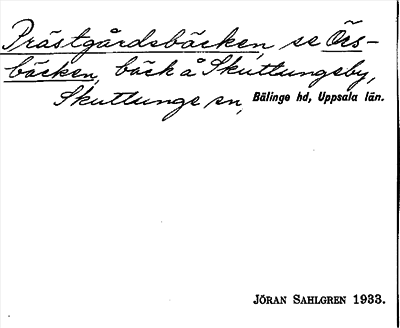 Prästgårdsbäcken, se Örs-
bäcken, bäck å Skuttungeby,
Skuttunge sn, Bälinge hd, Uppsala län.
JÖRAN SAHLGREN 1933.